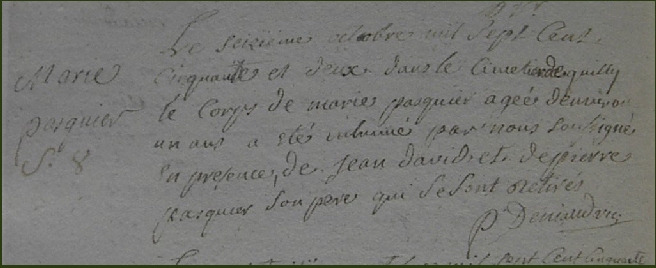 Marie
pasquier
St. 8
Le seizième octobre mil sept Cent
cinquante et deux dans le Cimetierde quilly
le Corps de marie pasquier ageé denviron
un ans a etés inhumée par nous soussigné
En presence, de jean david et depierre
pasquier son pere qui se sont retirés
p. Deniaud
sept Cent cinquante